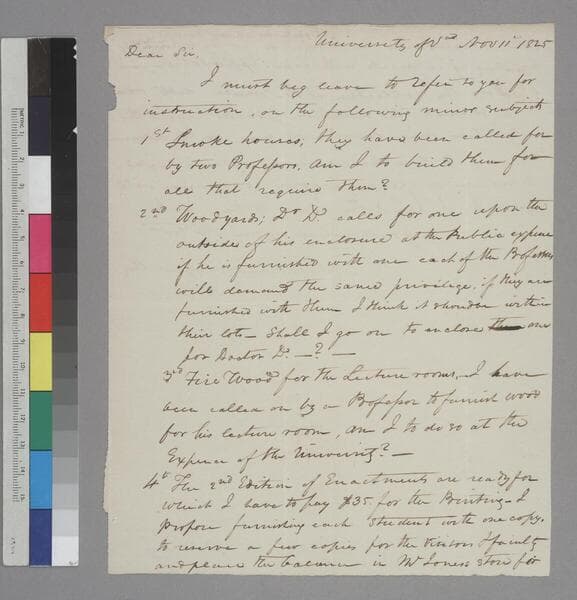 University of Va Nov 11th 1825
Dear Sir,
I must beg leave to refer to you for
instruction, on the following minor subjects
1st Smoke houses, they have been called for
by two Professors. am I to build them for
all that require them?
2nd Woodyards; Dr D. calls for one upon the
outside of his enclosure at the Public expense
if he is furnished with one each of the Professors
will demand the same privilege. if they are
furnished with them I think it should within
their lots – Shall I go on to enclose one
for Doctor D. – ? –
3rd Fire Wood for the Lecture rooms, – I have
been called on by a Professor to furnish wood
for his lecture room, am I to do so at the
Expence of the University? –
4th The 2nd Edition of Enactments are ready for
which I have to pay $35 for the Printing – I
Propose furnishing each Student with one copy.
to reserve a few copies for the Visitors & faculty
and place the balance in Mr Jones's store for